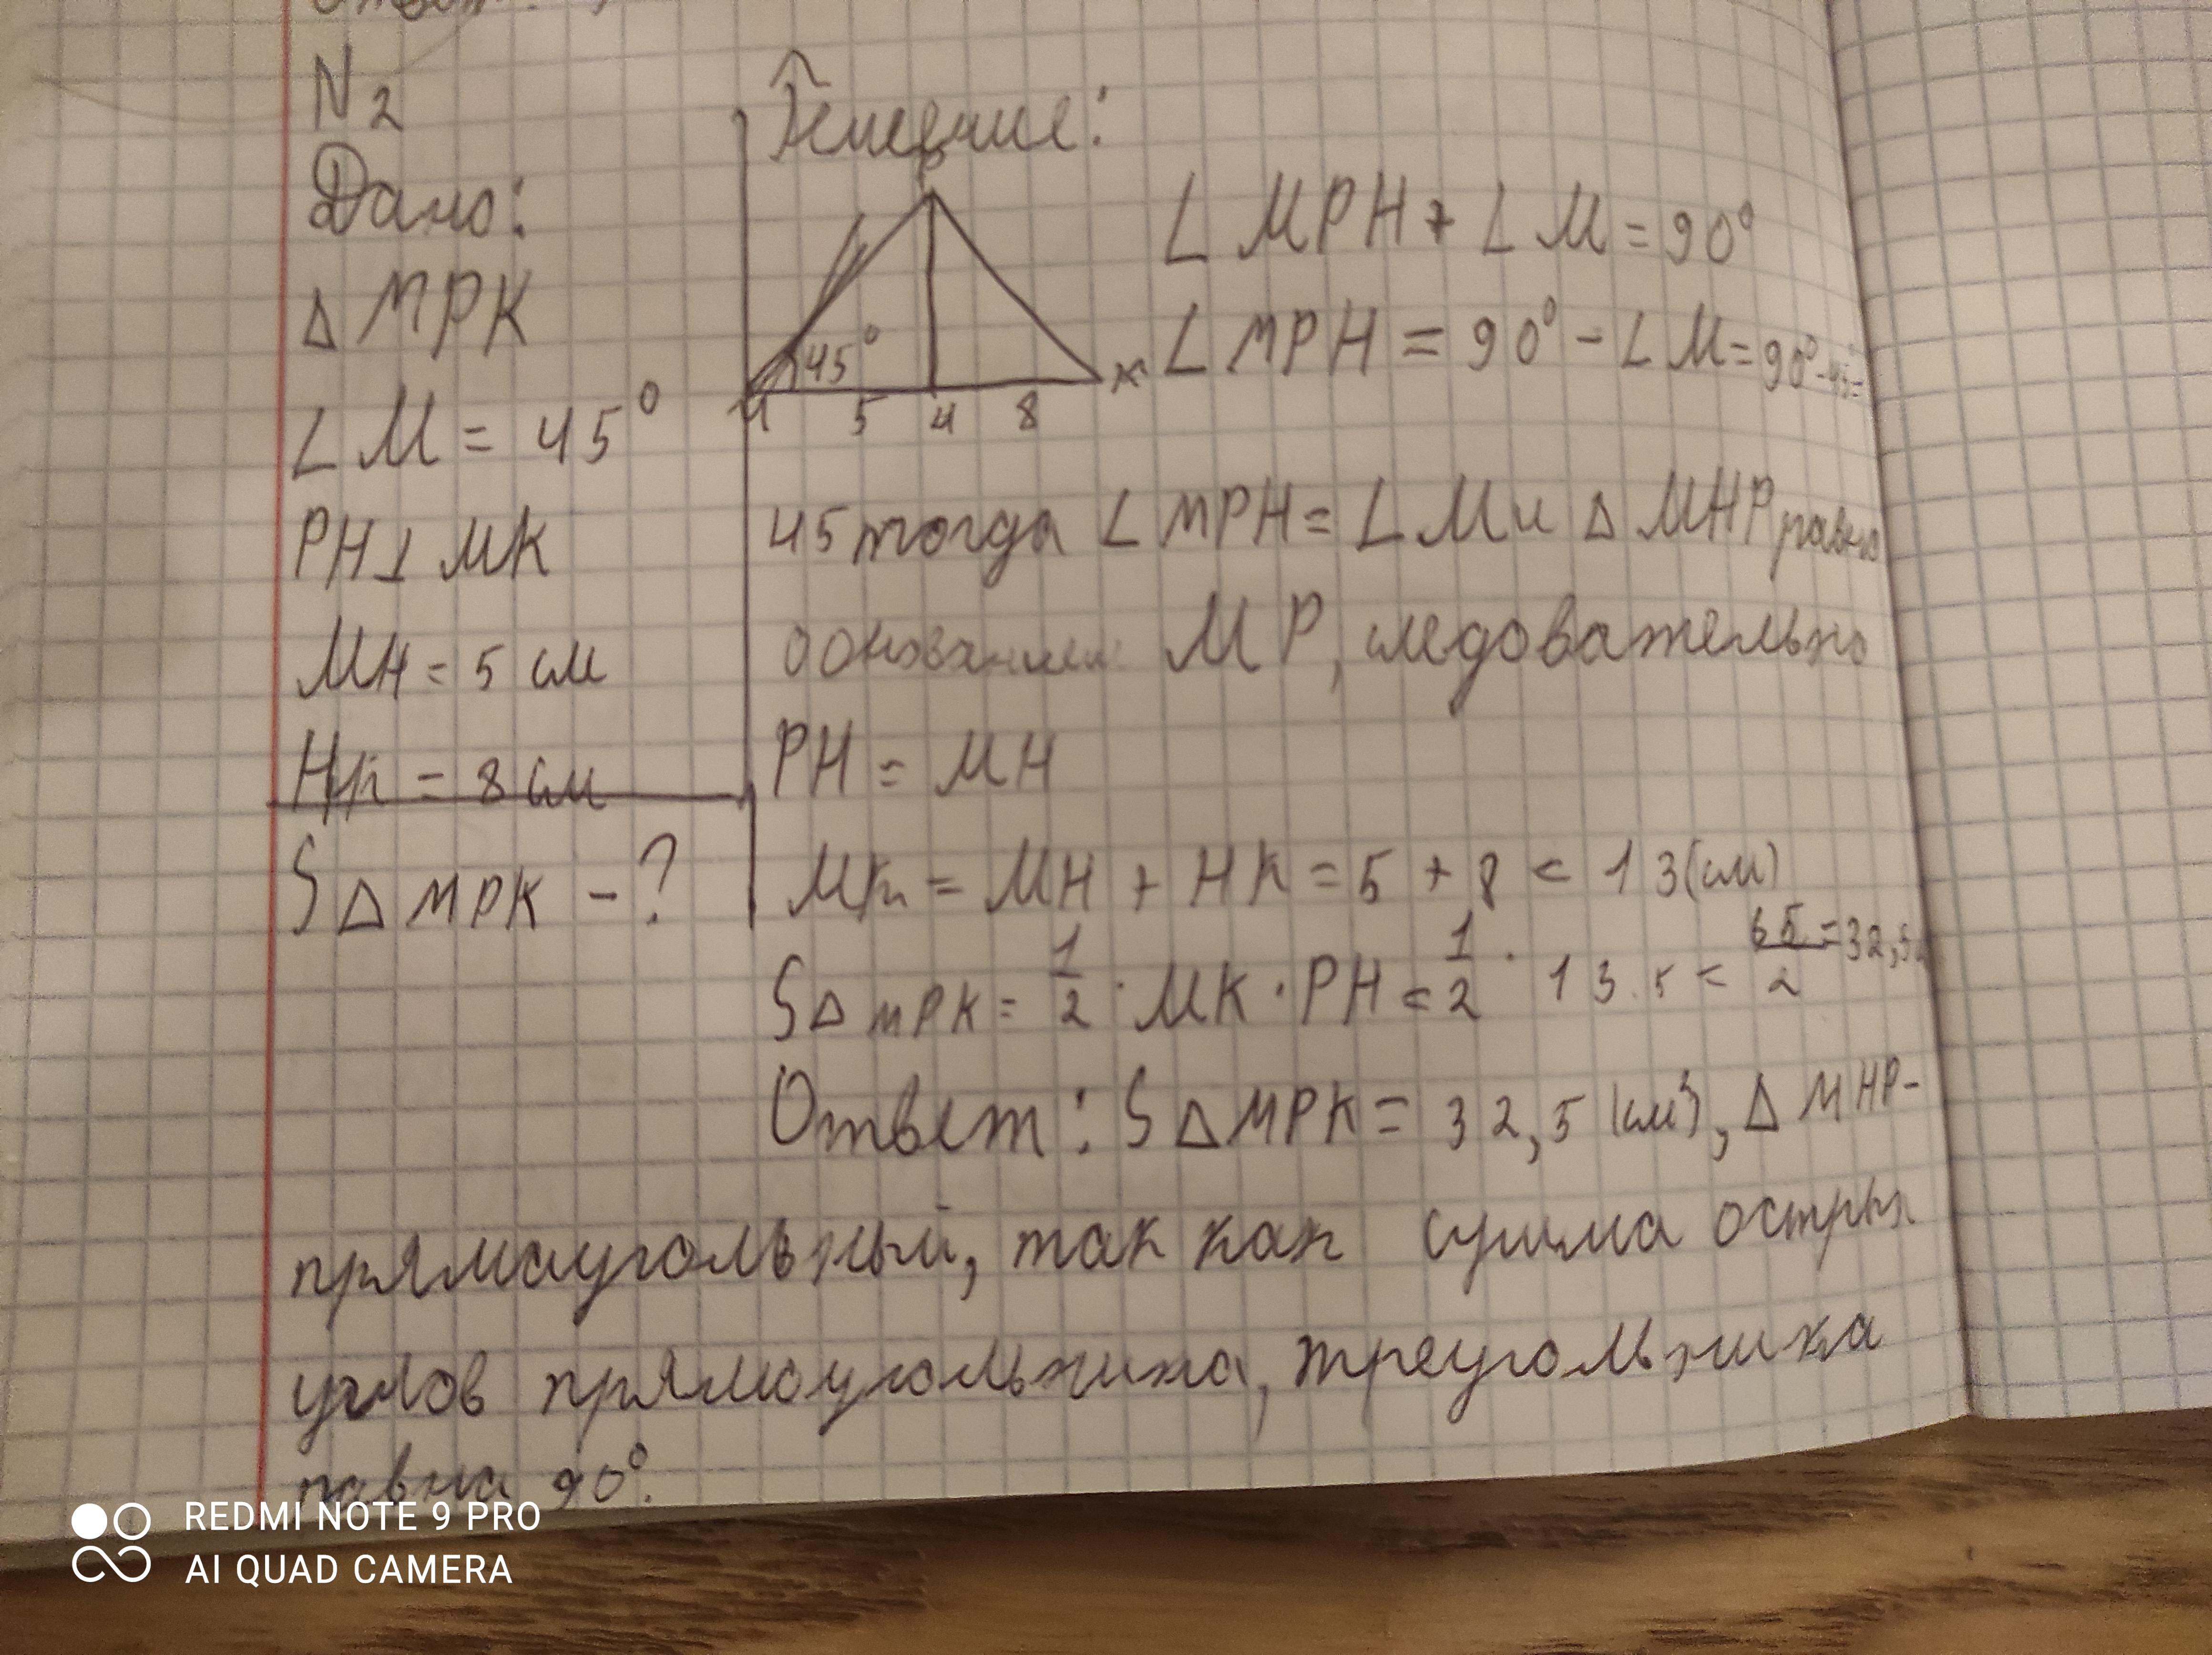 N2
Дано:
Δ MPK
∠M = 45°
PH⊥MK
MH = 5 см
HK = 8 см
S Δ MPK - ?
Решение:
P
45°
M 5 H 8 K
∠MPH + ∠M = 90°
∠MPH = 90° - ∠M = 90° - 45 =
45 тогда ∠MPH = ∠M и Δ MHP равно
основанием MP, следовательно
PH = MH
MK = MH + HK = 5 + 8 = 13 (см)
S Δ MPK = 1/2 · MK · PH = 1/2 · 13 · 5 = 65/2 = 32,5
Ответ: S Δ MPK = 32,5 (см²), Δ MHP-
прямоугольный, так как сумма острых
углов прямоугольника, треугольника
равна 90°.
REDMI NOTE 9 PRO
AI QUAD CAMERA